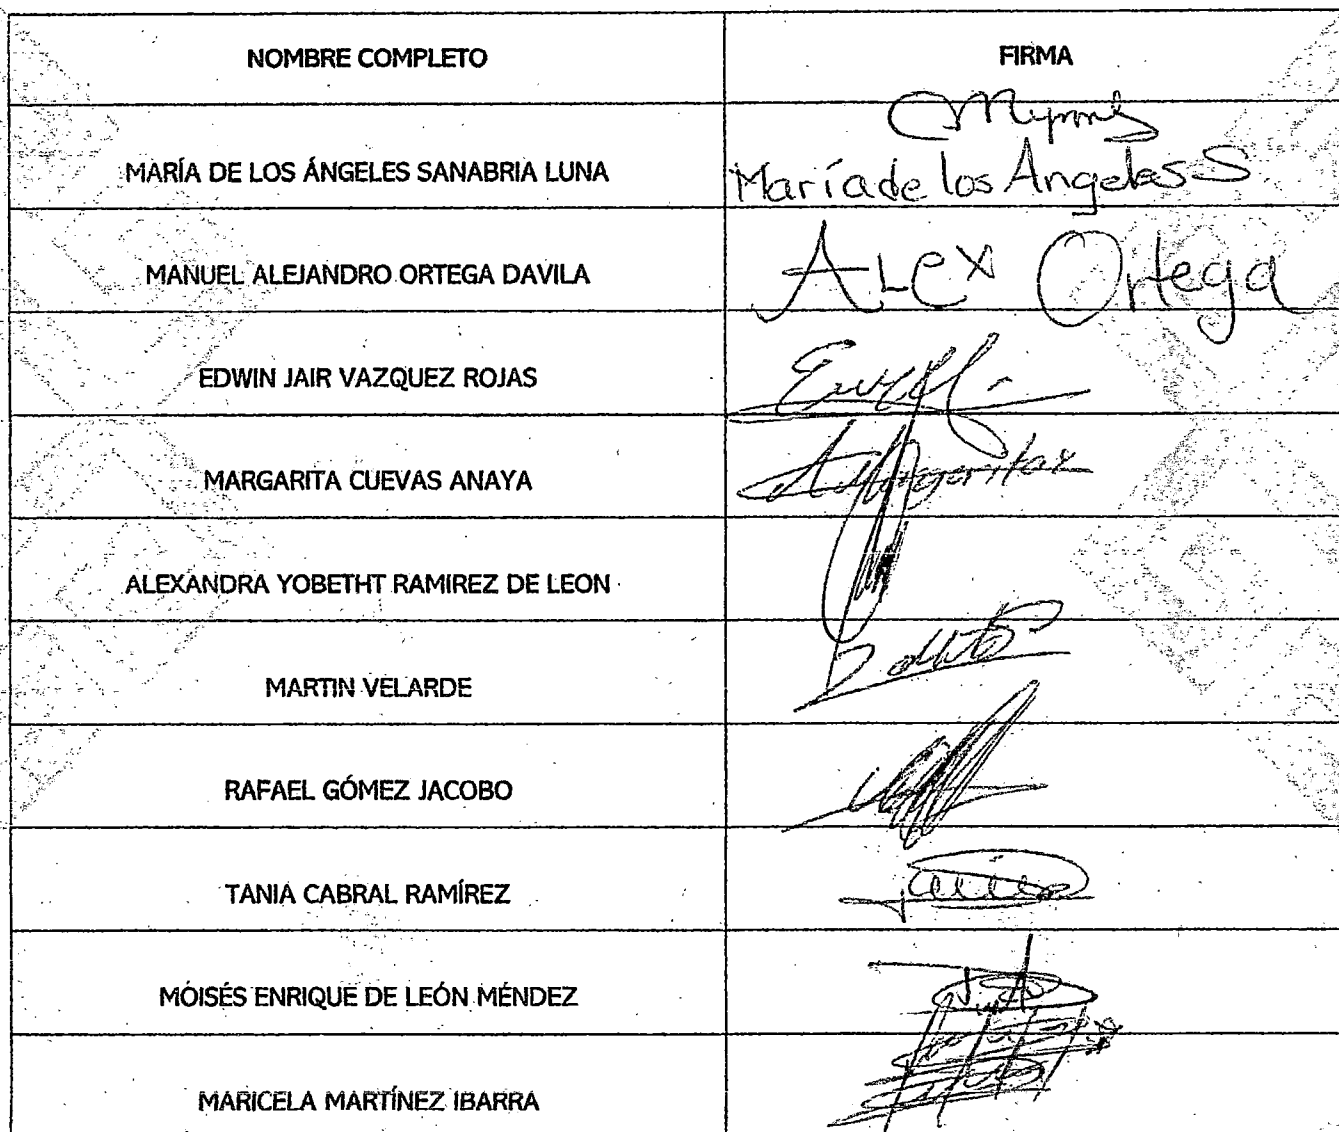 NOMBRE COMPLETO FIRMA
MARÍA DE LOS ÁNGELES SANABRIA LUNA María de los Angeles S
MANUEL ALEJANDRO ORTEGA DAVILA ALex Ortega
EDWIN JAIR VAZQUEZ ROJAS
MARGARITA CUEVAS ANAYA Margarita
ALEXANDRA YOBETHT RAMIREZ DE LEON
MARTIN VELARDE
RAFAEL GÓMEZ JACOBO
TANIA CABRAL RAMÍREZ
MOISÉS ENRIQUE DE LEÓN MÉNDEZ
MARICELA MARTÍNEZ IBARRA